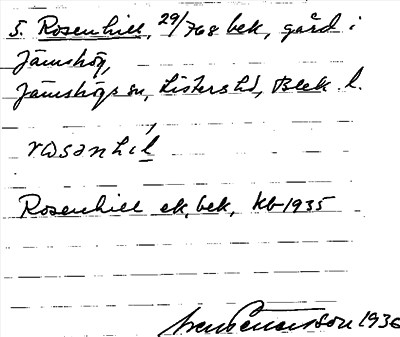 5. Rosenhill, 29/768 bek, gård i
Jämshög,
Jämshögs sn, Listers hd, Blek. l.
rωsənhíl
Rosenhill ek, bek, kb 1935
1936